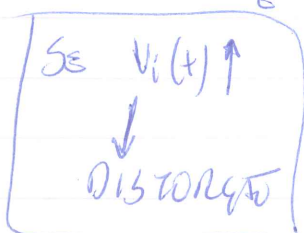 SE Vi(t) ↑
↓
DISTORÇÃO